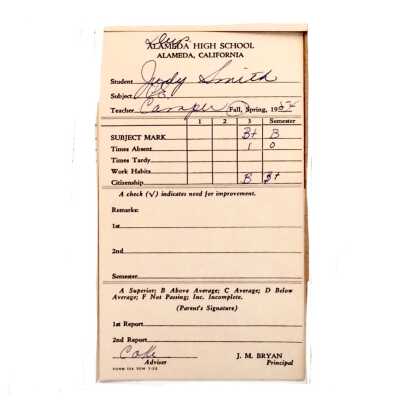 ALAMEDA HIGH SCHOOL
ALAMEDA, CALIFORNIA
Student Judy Smith
Subject
Teacher Camper Fall, Spring, 195
1 2 3 Semester
SUBJECT MARK B+ B
Times Absent 1 0
Times Tardy
Work Habits
Citizenship B B+
A check (√) indicates need for improvement.
Remarks:
1st
2nd
Semester
A Superior; B Above Average; C Average; D Below
Average; F Not Passing; Inc. Incomplete.
(Parent's Signature)
1st Report
2nd Report
J. M. BRYAN
Adviser Principal